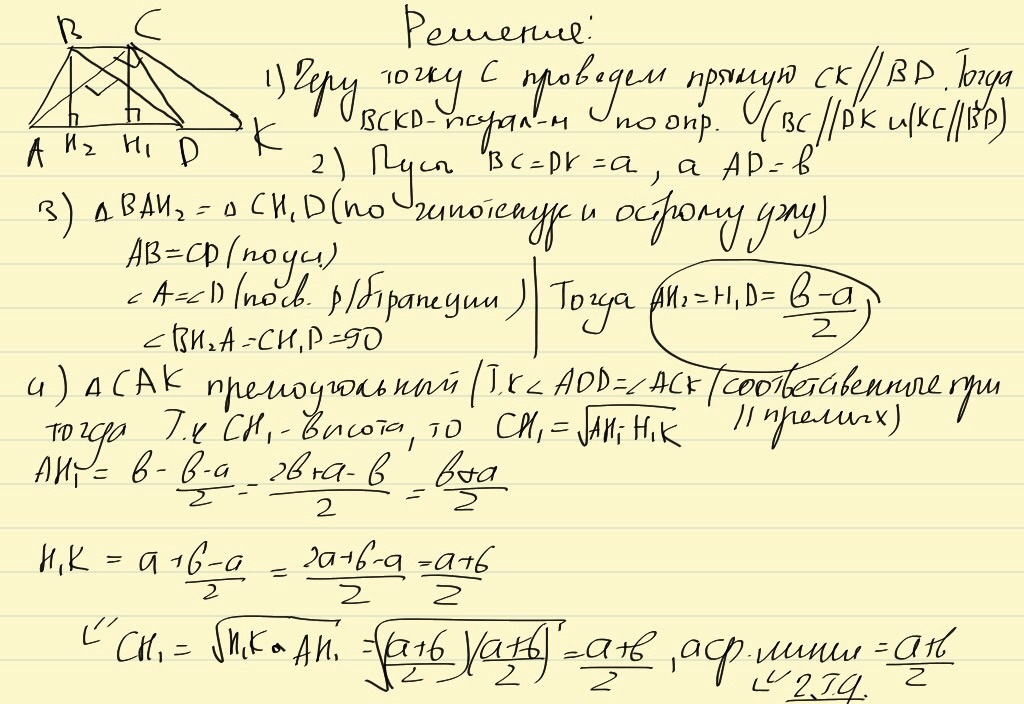 Решение:
B C
A H₂ H₁ D K
1) Через точку C проведем прямую CK//BD. Тогда
BCKD - парал-м по опр. (BC//DK и KC//BD)
2) Пусть BC=DK=a, а AD=b
3) ΔBAH₂=ΔCH₁D (по гипотенузе и острому углу)
AB=CD (по усл)
∠A=∠D (по св. р/б трапеции) | Тогда AH₂=H₁D= (b-a)/2
∠BH₂A=CH₁D=90
4) ΔCAK прямоугольный (т.к ∠AOD=∠ACK (соответственные при
тогда т.к CH₁-высота, то CH₁=√(AH₁·H₁K) // прямых)
AH₁ = b - (b-a)/2 = (2b+a-b)/2 = (b+a)/2
H₁K = a + (b-a)/2 = (2a+b-a)/2 = (a+b)/2
CH₁ = √(H₁K · AH₁) = √((a+b)/2)((a+b)/2) = (a+b)/2, а ср. линия = (a+b)/2
ч.т.д.